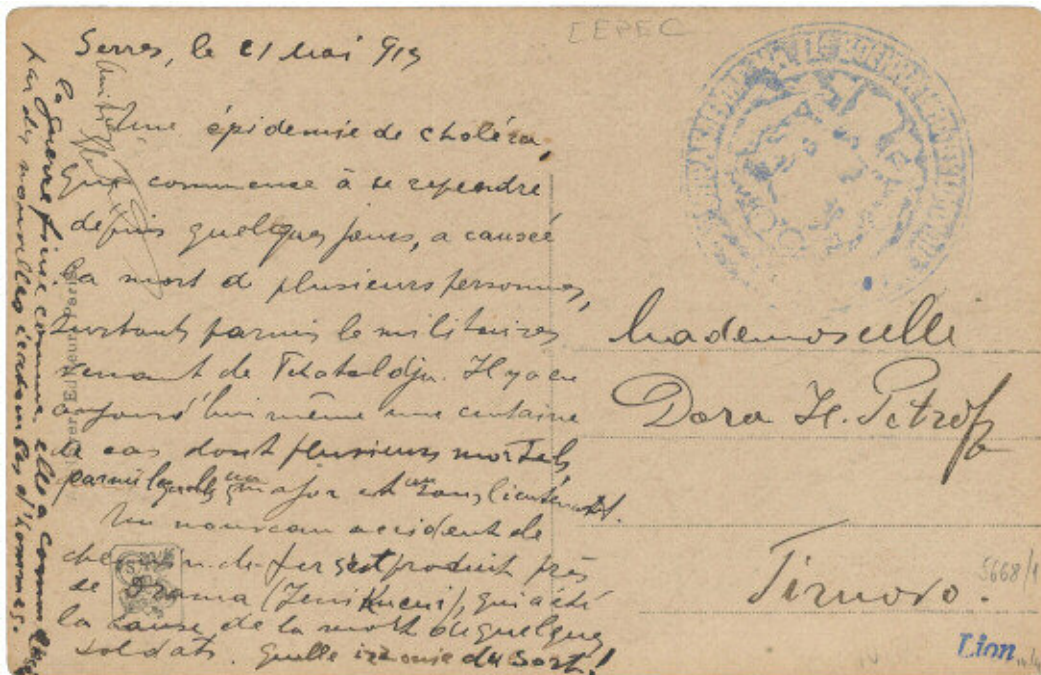 СЕРЕС
Serres, le 21 Mai 913
Une épidemie de choléra,
qui commence à se rependre
depuis quelques jours, a causée
la mort de plusieurs personnes,
surtout parmis le militaires
venant de Tchataldja. Il y a eu
aujourd'hui même une centaine
de cas dont plusieurs mortels
parmi lesquels un major et un sous lieutenant.
Un nouveau accident de
chemin de fer s'est produit près
de Drama (Jeni Kueui), qui a été
la cause de la mort de quelques
soldats. Quelle ironie du sort!
la guerre finie comme elle a commencée
par des nouvelles écatombes d'hommes.
Editeur Paris
Mademoiselle
Dora H. Petroff
Tirnovo.
5668/1
Lion